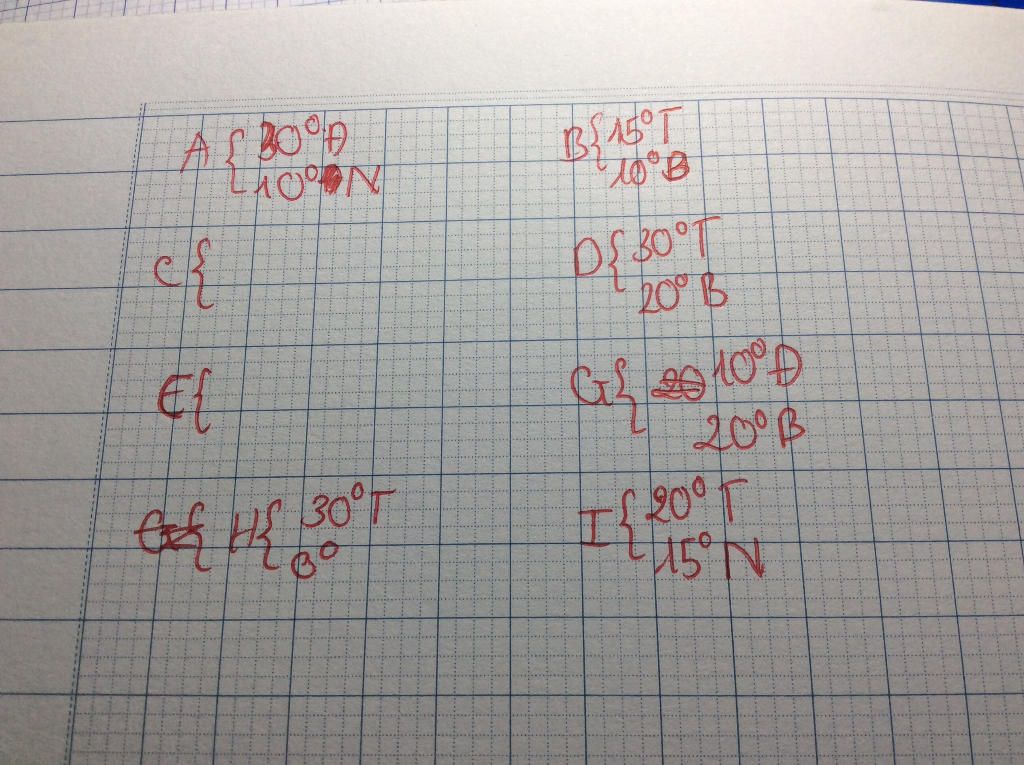 A { 30° Đ
10° N
B { 15° T
10° B
C {
D { 30° T
20° B
E {
G { 10° Đ
20° B
H { 30° T
0°
I { 20° T
15° N